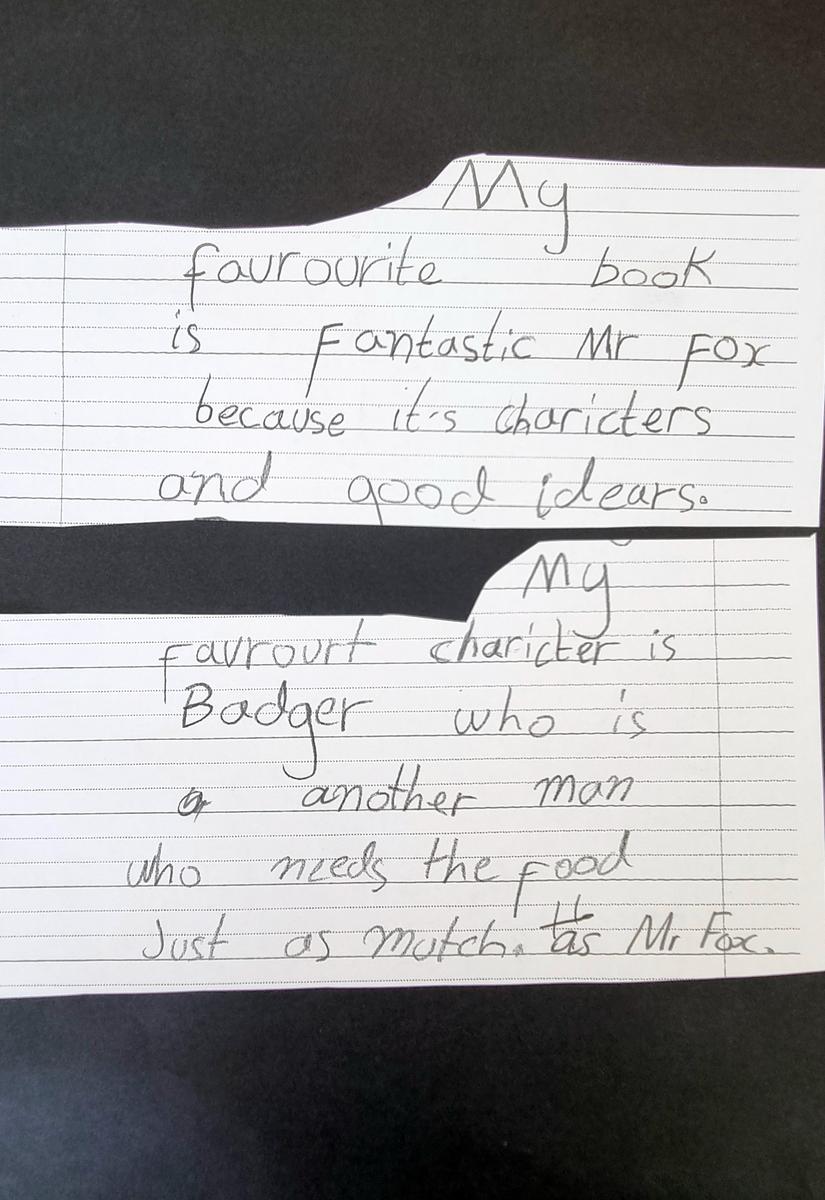 My
favrourite book
is Fantastic Mr Fox
because it's charicters
and good idears.
My
favrourt charicter is
Badger who is
another man
who needs the food
Just as mutch. as Mr Fox.